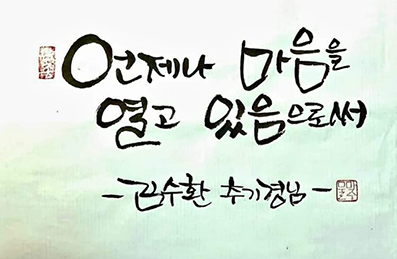 언제나 마음을
열고 있음으로써
-김수환 추기경님-